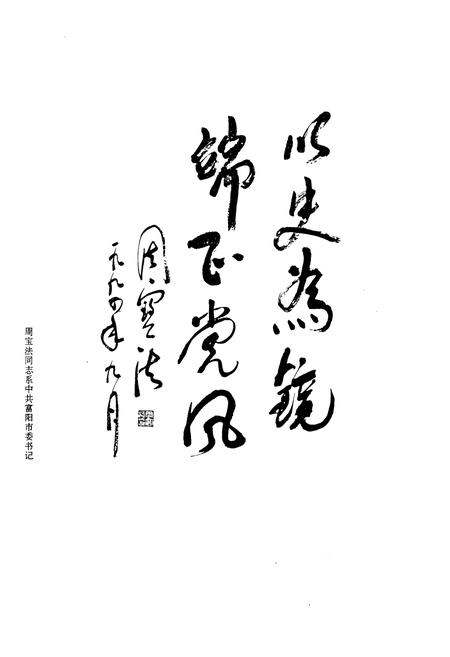 以史為鏡
端正党风
周宝法
一九九四年九月
周宝法同志系中共富阳市委书记